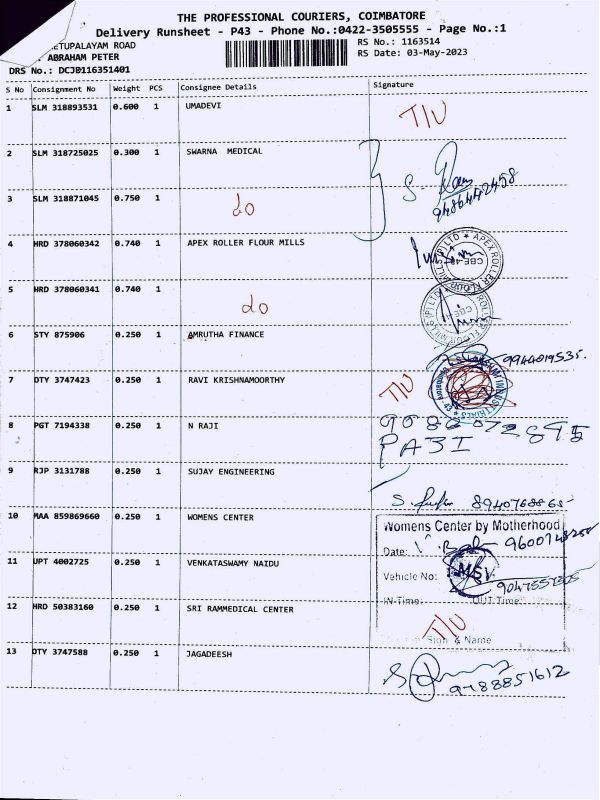 THE PROFESSIONAL COURIERS, COIMBATORE
Delivery Runsheet - P43 - Phone No.:0422-3505555 - Page No.:1
ETUPALAYAM ROAD RS No.: 1163514
ABRAHAM PETER RS Date: 03-May-2023
DRS No.: DCJ0116351401
S No Consignment No Weight PCS Consignee Details Signature
1 SLM 318893531 0.600 1 UMADEVI T/U
2 SLM 318725025 0.300 1 SWARNA MEDICAL
S. Ram
9486442458
3 SLM 318871045 0.750 1 do
4 HRD 378060342 0.740 1 APEX ROLLER FLOUR MILLS
APEX ROLLER FLOUR MILLS (P) LTD
5 HRD 378060341 0.740 1 do
6 STY 875906 0.250 1 AMRUTHA FINANCE
9944019535.
7 DTY 3747423 0.250 1 RAVI KRISHNAMOORTHY T/U
8 PGT 7194338 0.250 1 N RAJI
9 RJP 3131788 0.250 1 SUJAY ENGINEERING
8940768868
10 MAA 859869660 0.250 1 WOMENS CENTER
Womens Center by Motherhood
Date:
11 UPT 4002725 0.250 1 VENKATASWAMY NAIDU
Vehicle No:
IN-Time: OUT Time:
12 HRD 50383160 0.250 1 SRI RAMMEDICAL CENTER T/U
Sign & Name
13 DTY 3747588 0.250 1 JAGADEESH
9488851612